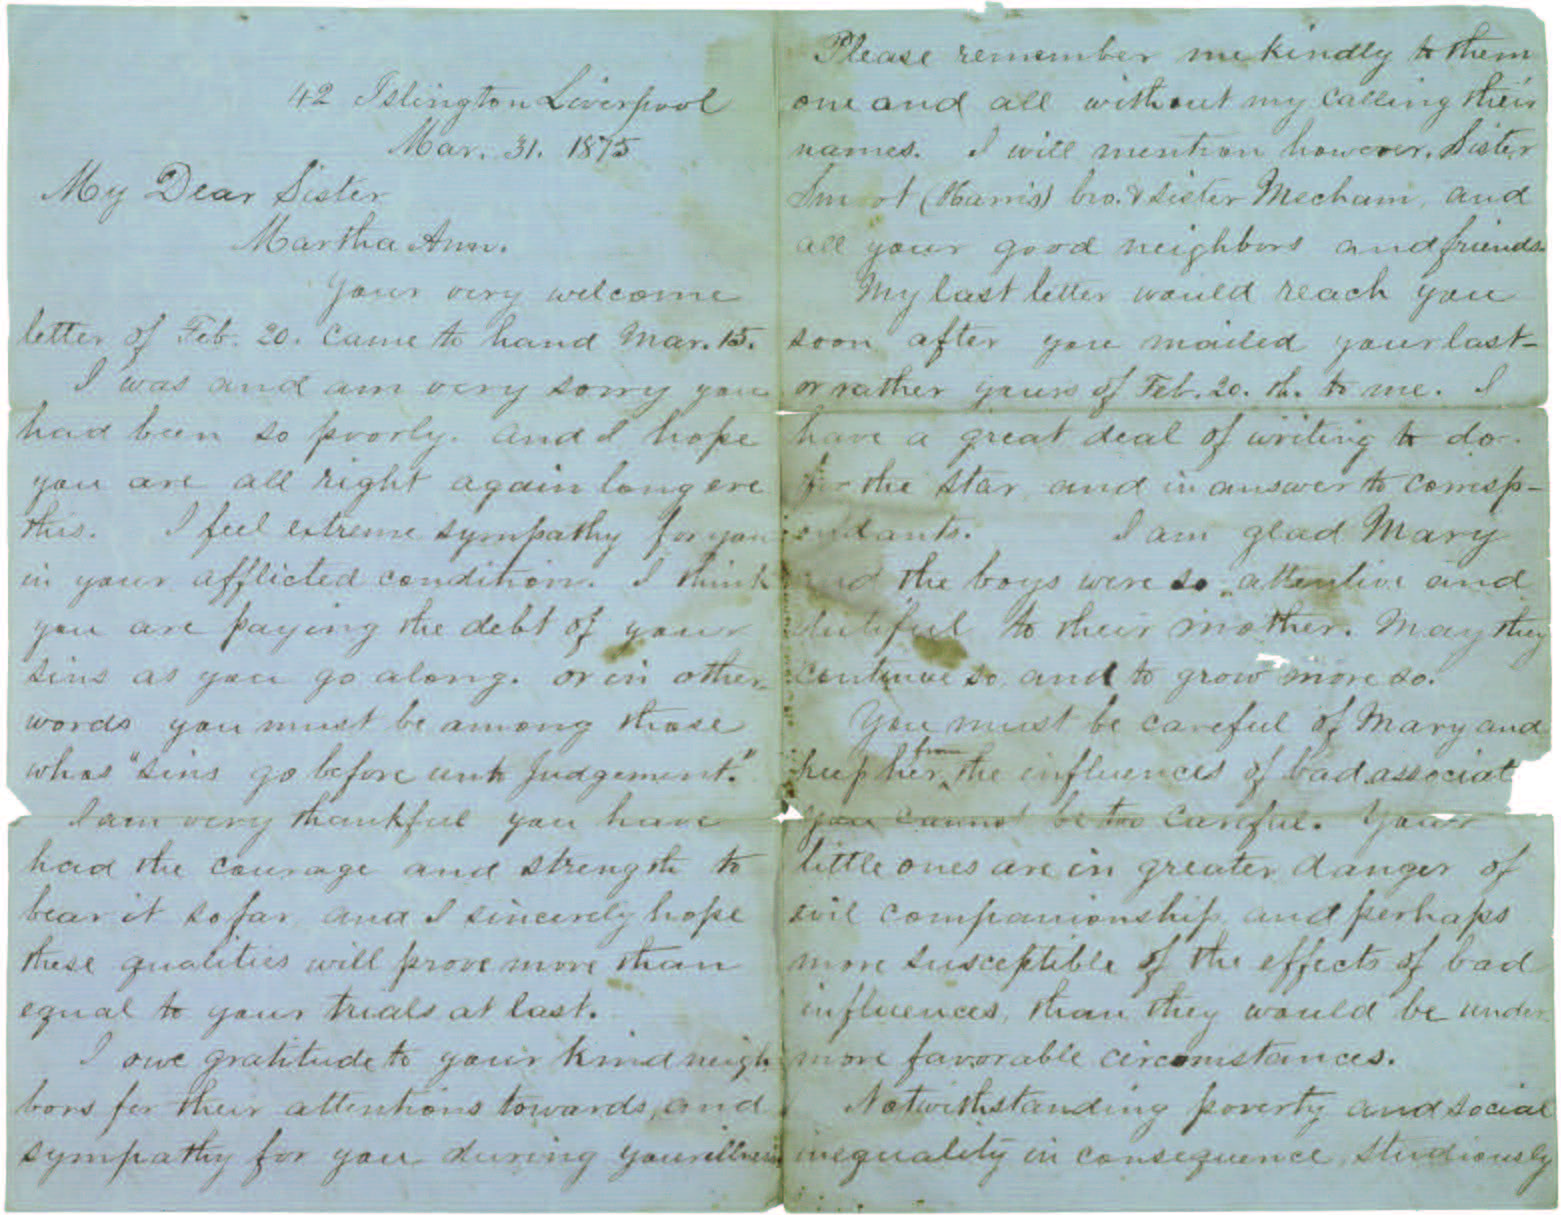 42 Islington Liverpool
Mar. 31. 1875
My Dear Sister
Martha Ann.
Your very welcome
letter of Feb. 20. came to hand Mar. 15.
I was and am very sorry you
had been so poorly. and I hope
you are all right again long ere
this. I feel extreme sympathy for you
in your afflicted condition. I think
you are paying the debt of your
sins as you go along. or in other
words you must be among those
whos "sins go before unto Judgement."
I am very thankful you have
had the courage and strength to
bear it so far and I sincerely hope
these qualities will prove more than
equal to your trials at last.
I owe gratitude to your kind neigh
bors for their attentions towards, and
sympathy for you during your illness
Please remember me kindly to them
one and all without my calling their
names. I will mention however, Sister
Smoot (Harris) bro. & sister Mecham, and
all your good neighbors and friends.
My last letter would reach you
soon after you mailed your last-
or rather yours of Feb. 20. th. to me. I
have a great deal of writing to do.
for the Star, and in answer to corresp-
ondants. I am glad Mary
and the boys were so attentive and
dutiful to their mother. May they
continue so and to grow more so.
You must be careful of Mary and
keep her from the influences of bad associat
you cannot be too careful. Your
little ones are in greater danger of
evil companionship, and perhaps
more susceptible of the effects of bad
influences, than they would be under
more favorable circomstances.
Notwithstanding poverty and social
inequality in consequence, studiously